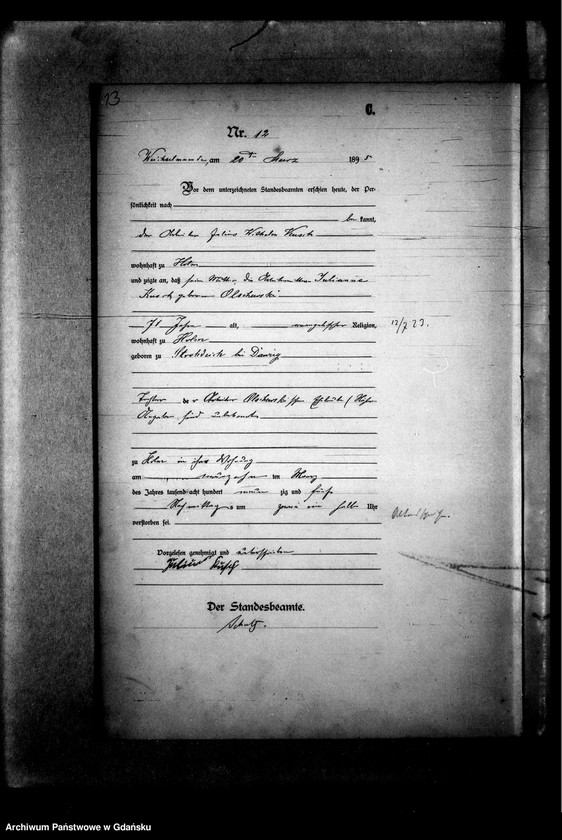 13
C.
Nr. 12
Weichselmünde, am 20ten März 1895
Vor dem unterzeichneten Standesbeamten erschien heute, der Per-
sönlichkeit nach
be kannt,
der Arbeiter Julius Wilhelm
wohnhaft zu Holm
und zeigte an, daß seine Mutter, die Julianne
geborene Olschewski
71 Jahre alt, evangelischer Religion,
wohnhaft zu Holm
geboren zu Strohdeich bei Danzig
Tochter der Arbeiter Olschewski'schen Eheleute (Nähere
Angaben sind unbekannt
zu Holm in ihrer Wohnung
am ten März
des Jahres tausend acht hundert neun zig und fünf
Nachmittags um ein halb Uhr
verstorben sei.
Vorgelesen, genehmigt und unterschrieben
Julius
Der Standesbeamte.
Schultz.
Archiwum Państwowe w Gdańsku